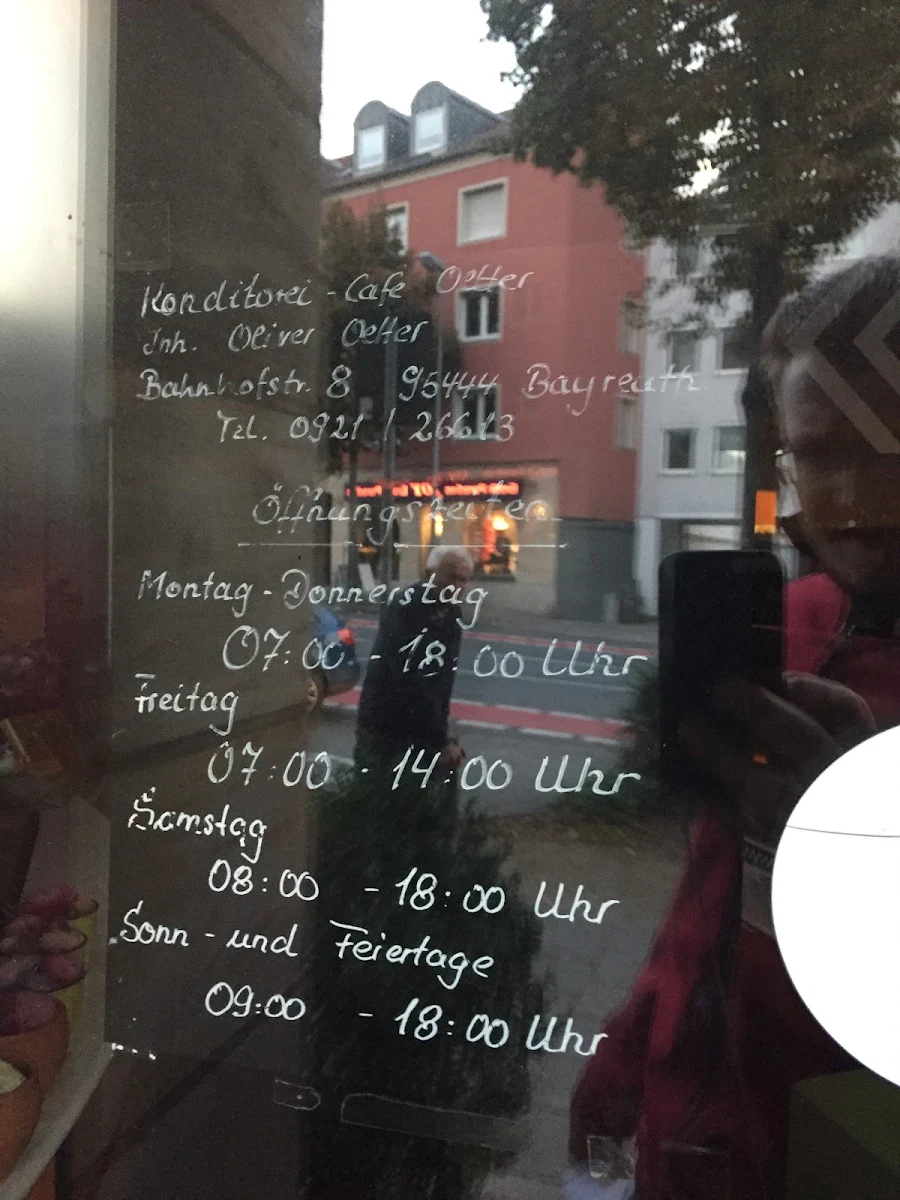 Konditorei - Cafe Oetter
Inh. Oliver Oetter
Bahnhofstr. 8 95444 Bayreuth
Tel. 0921 / 26613
Öffnungszeiten
Montag - Donnerstag
07:00 - 18:00 Uhr
Freitag
07:00 - 14:00 Uhr
Samstag
08:00 - 18:00 Uhr
Sonn - und Feiertage
09:00 - 18:00 Uhr